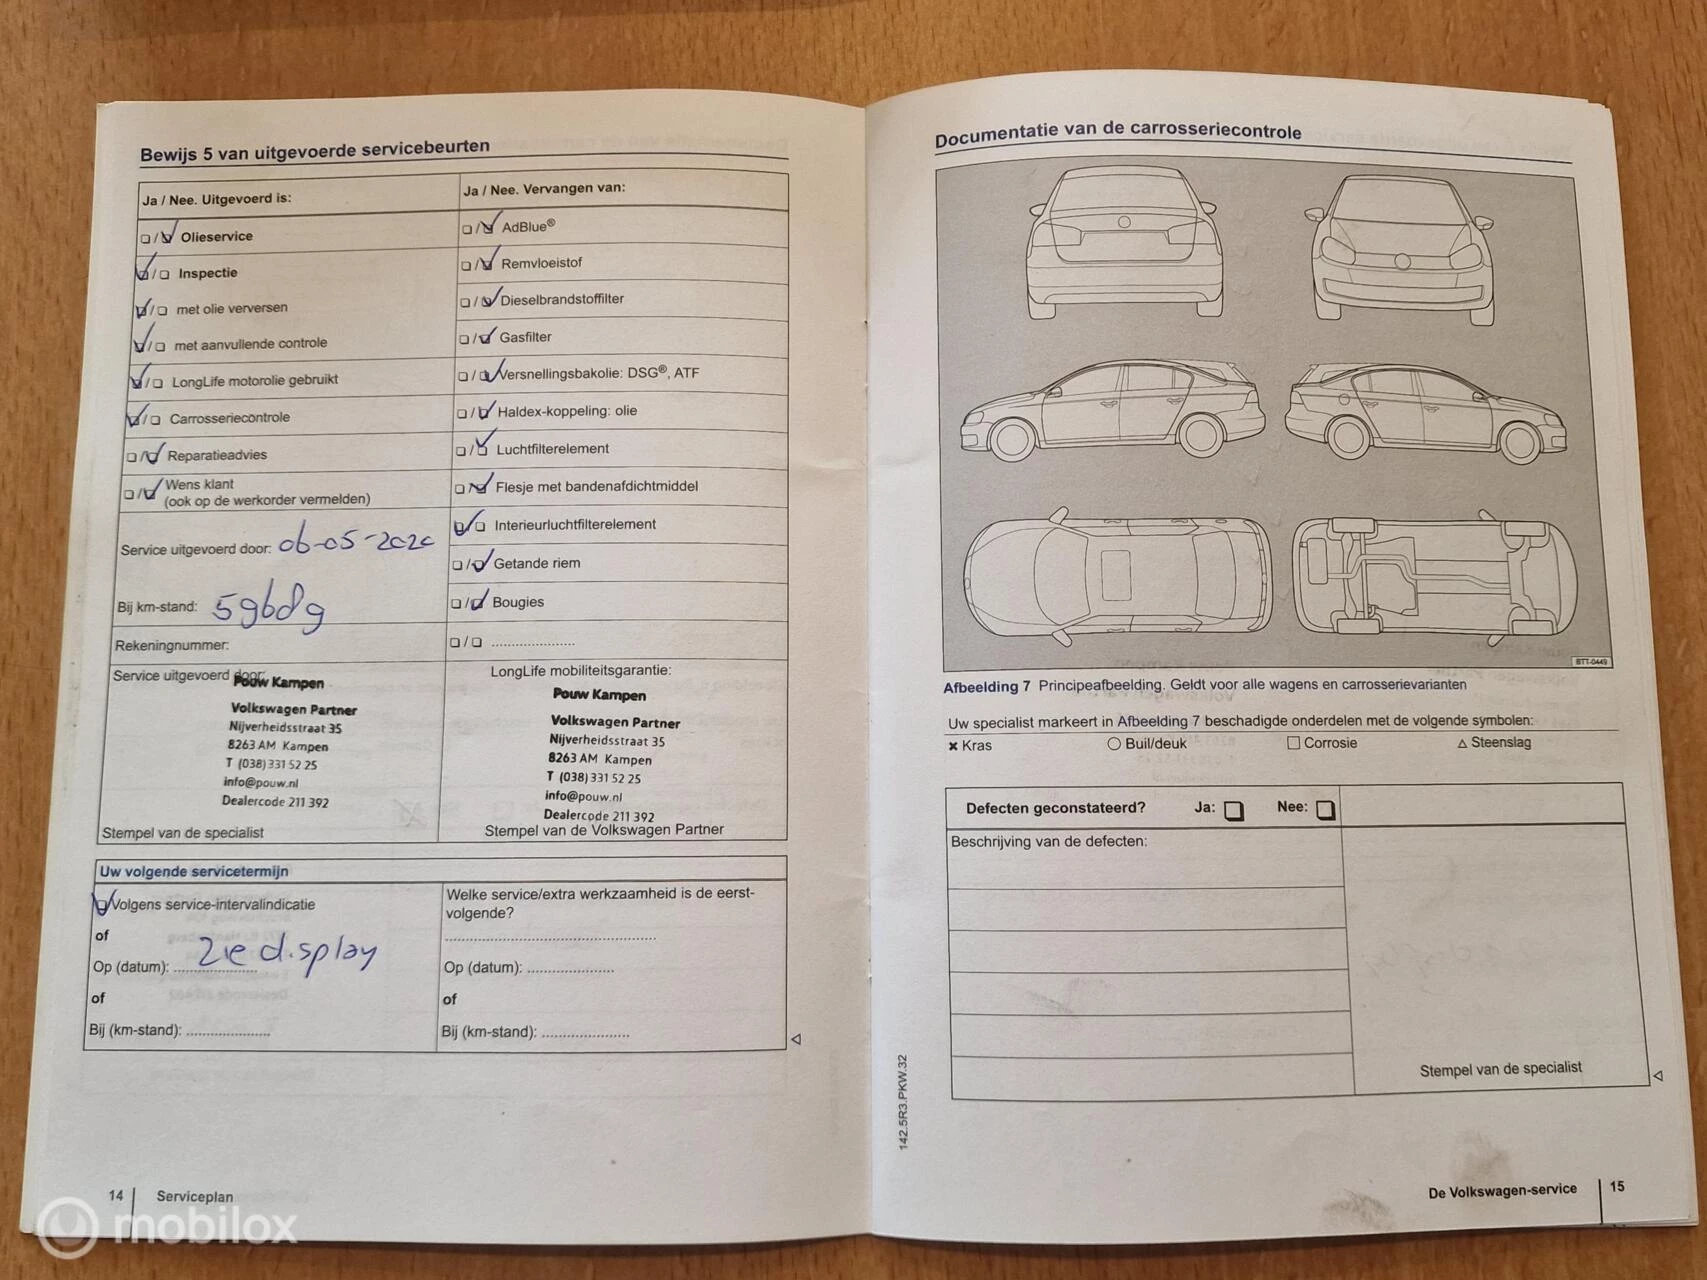 Bewijs 5 van uitgevoerde servicebeurten
Ja / Nee. Uitgevoerd is:
Olieservice
Inspectie
met olie verversen
met aanvullende controle
LongLife motorolie gebruikt
Carrosseriecontrole
Reparatieadvies
Wens klant
(ook op de werkorder vermelden)
Service uitgevoerd door: 06-05-2020
Bij km-stand:
Rekeningnummer:
Ja / Nee. Vervangen van:
AdBlue®
Remvloeistof
Dieselbrandstoffilter
Gasfilter
Versnellingsbakolie: DSG®, ATF
Haldex-koppeling: olie
Luchtfilterelement
Flesje met bandenafdichtmiddel
Interieurluchtfilterelement
Getande riem
Bougies
Service uitgevoerd door:
Pouw Kampen
Volkswagen Partner
Nijverheidsstraat 35
8263 AM Kampen
T (038) 331 52 25
info@pouw.nl
Dealercode 211 392
Stempel van de specialist
LongLife mobiliteitsgarantie:
Pouw Kampen
Volkswagen Partner
Nijverheidsstraat 35
8263 AM Kampen
T (038) 331 52 25
info@pouw.nl
Dealercode 211 392
Stempel van de Volkswagen Partner
Uw volgende servicetermijn
Volgens service-intervalindicatie
of
Op (datum): zie display
of
Bij (km-stand):
Welke service/extra werkzaamheid is de eerst-
volgende?
Op (datum):
of
Bij (km-stand):
14 Serviceplan
mobilox
Documentatie van de carrosseriecontrole
BTT-0449
Afbeelding 7 Principeafbeelding. Geldt voor alle wagens en carrosserievarianten
Uw specialist markeert in Afbeelding 7 beschadigde onderdelen met de volgende symbolen:
Kras Buil/deuk Corrosie Steenslag
Defecten geconstateerd? Ja: Nee:
Beschrijving van de defecten:
Stempel van de specialist
142.5R3.PKW.32
De Volkswagen-service 15